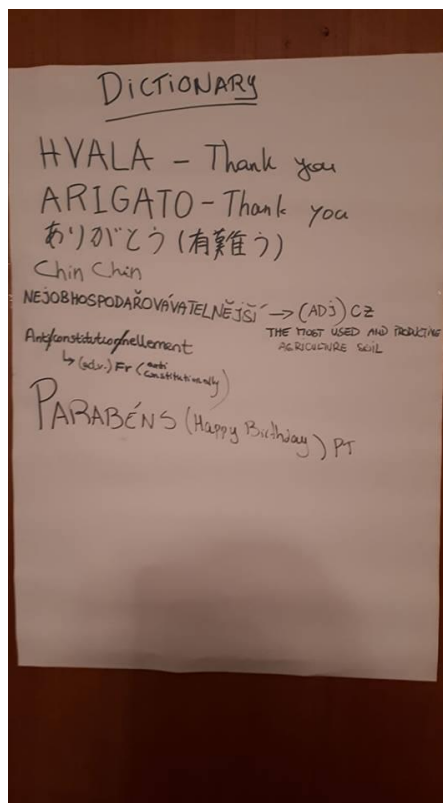 DICTIONARY
HVALA – Thank you
ARIGATO – Thank you
ありがとう(有難う)
Chin Chin
NEJOBHOSPODAŘOVÁVATELNĚJŠÍ → (ADJ) CZ
THE MOST USED AND PRODUCTIVE
AGRICULTURE SOIL
Anti/constitution/nellement
↳ (adv.) Fr (anti
constitutionally)
PARABÉNS (Happy Birthday) PT